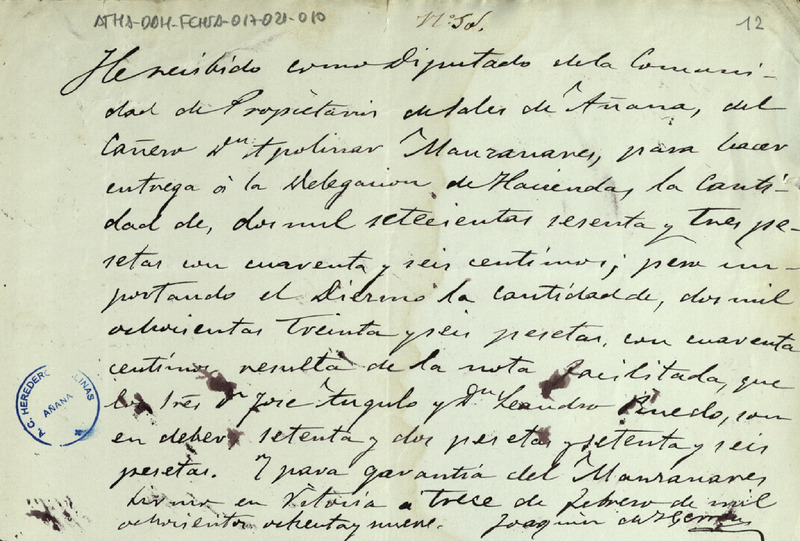 ATHA-DDH-FCHSA-017-021-010
12
Nº 50.
He recibido como Diputado de la Comuni-
dad de Propietarios de Sales de Añana, del
Cañero Dn Apolinar Manzanares, para hacer
entrega á la Delegacion de Hacienda, la Canti-
dad de, dos mil setecientas sesenta y tres pe-
setas con cuarenta y seis centimos; pero im-
portando el Diezmo la Cantidad de, dos mil
ochocientas treinta y seis pesetas, con cuarenta
centimos resulta de la nota facilitada, que
los tres Dn Jose Angulo y Dn Leandro son
en deber setenta y dos pesetas y setenta y seis
pesetas. Y para garantia del Manzanares
firmo en Vitoria a trece de Febrero de mil
ochocientos ochenta y nueve. Joaquin de
A.C. HEREDEROS SALINAS
AÑANA